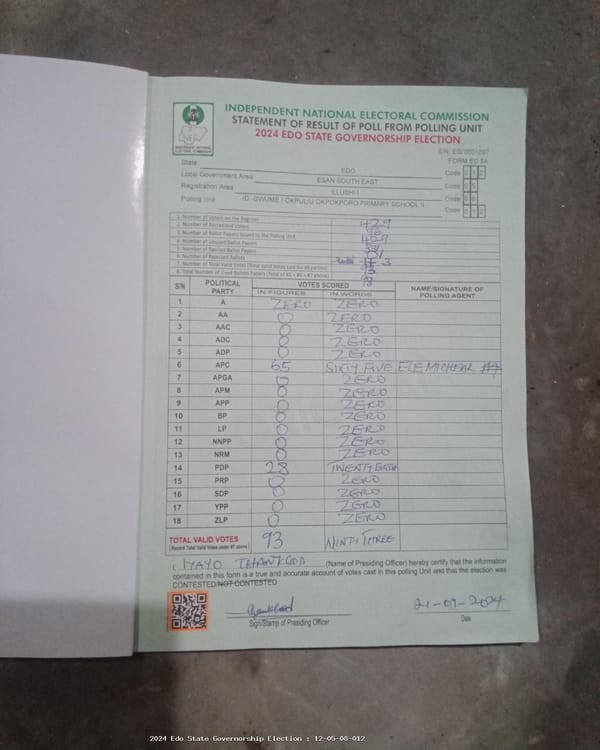 INDEPENDENT NATIONAL ELECTORAL COMMISSION
STATEMENT OF RESULT OF POLL FROM POLLING UNIT
2024 EDO STATE GOVERNORSHIP ELECTION
FORM EC 8A
State EDO Code
Local Government Area ESAN SOUTH EAST Code
Registration Area ILLUSHI I Code
Polling Unit OKPUJIU OKPOKPORO PRIMARY SCHOOL Code
1. Number of Voters on the Register 429
2. Number of Accredited Voters
3. Number of Ballot Papers Issued to the Polling Unit 429
4. Number of Unused Ballot Papers
5. Number of Spoiled Ballot Papers
6. Number of Rejected Ballots
7. Number of Total Valid Votes (Total valid Votes cast for all parties)
8. Total Number of Used Ballots Papers (Total of #5 + #6 + #7 above)
S/N POLITICAL PARTY VOTES SCORED NAME/SIGNATURE OF POLLING AGENT
IN FIGURES IN WORDS
1 A ZERO ZERO
2 AA 0 ZERO
3 AAC 0 ZERO
4 ADC 0 ZERO
5 ADP 0 ZERO
6 APC 65 SIXTY FIVE ELE MICHEAR
7 APGA 0 ZERO
8 APM 0 ZERO
9 APP 0 ZERO
10 BP 0 ZERO
11 LP 0 ZERO
12 NNPP 0 ZERO
13 NRM 0 ZERO
14 PDP 28
15 PRP 0 ZERO
16 SDP 0 ZERO
17 YPP 0 ZERO
18 ZLP 0 ZERO
TOTAL VALID VOTES 93 NINTY THREE
(Record Total Valid Votes under #7 above)
I, IYAYO THANKGOD (Name of Presiding Officer) hereby certify that the information
contained in this form is a true and accurate account of votes cast in this polling Unit and that the election was
CONTESTED/NOT CONTESTED
21-09-2024
Sign/Stamp of Presiding Officer Date
2024 Edo State Governorship Election : 12-05-08-012